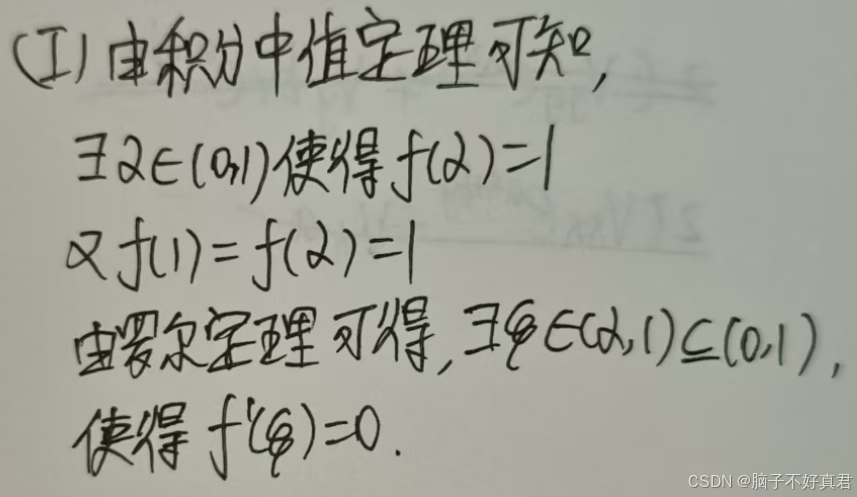 (I) 由积分中值定理可知,
∃α∈(0,1)使得f(α)=1
又f(1)=f(α)=1
由罗尔定理可得,∃ξ∈(α,1)⊆(0,1),
使得f'(ξ)=0.
CSDN @脑子不好真君